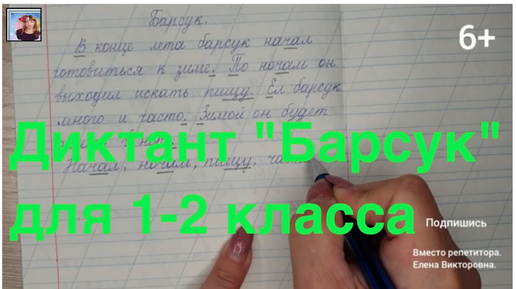 Барсук.
6+
В конце лета барсук начал
готовиться к зиме. По ночам он
выходил искать пищу. Ел барсук
много и часто. Зимой он будет
Диктант "Барсук"
Начал, ночам, пищу,
для 1-2 класса
Подпишись
Вместо репетитора.
Елена Викторовна.